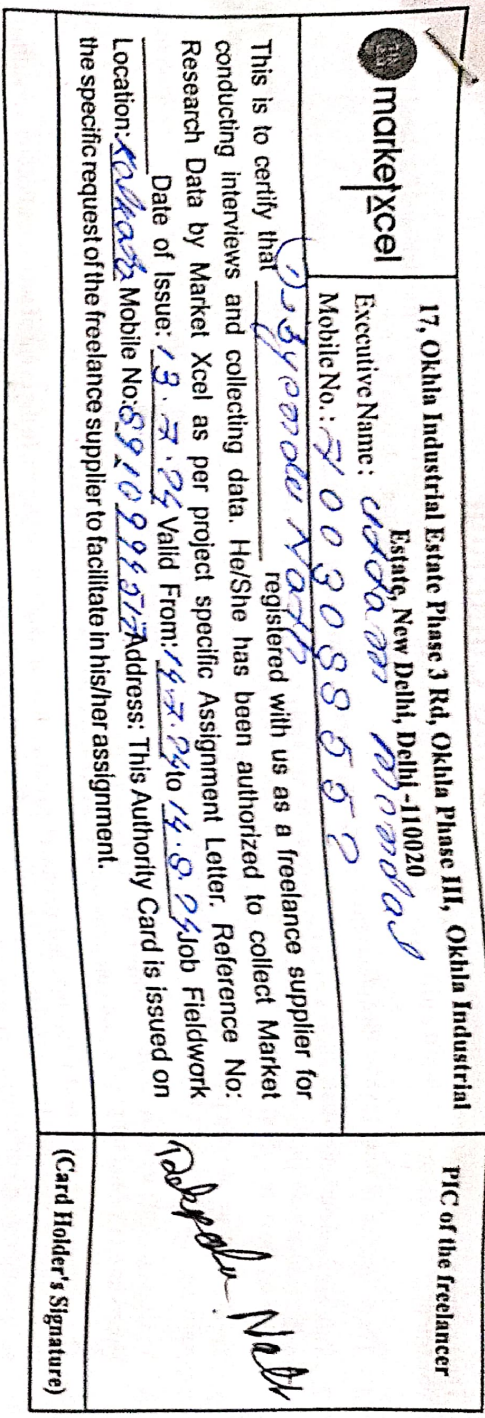 marketxcel
17, Okhla Industrial Estate Phase 3 Rd, Okhla Phase III, Okhla Industrial
Estate, New Delhi, Delhi -110020
Executive Name: Uttam Mondal
Mobile No.:
PIC of the freelancer
This is to certify that Nath registered with us as a freelance supplier for
conducting interviews and collecting data. He/She has been authorized to collect Market
Research Data by Market Xcel as per project specific Assignment Letter. Reference No:
Date of Issue: 13.7.24 Valid From: 14.7.24 to 14.8.24 Job Fieldwork
Location: Kolkata Mobile No: Address: This Authority Card is issued on
the specific request of the freelance supplier to facilitate in his/her assignment.
Nath
(Card Holder's Signature)